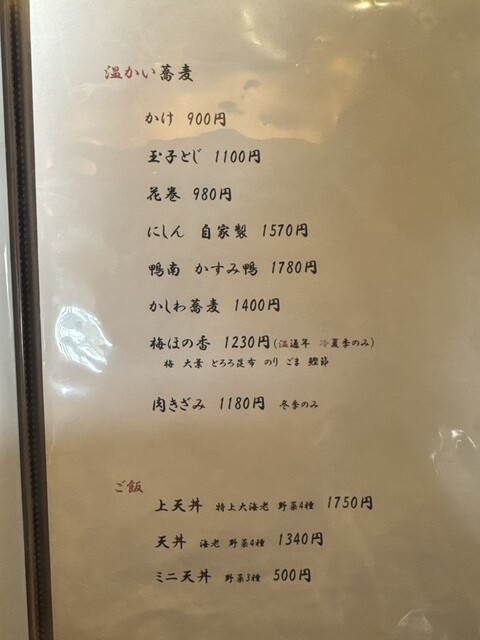 温かい蕎麦
かけ 900円
玉子とじ 1100円
花巻 980円
にしん 自家製 1570円
鴨南 かすみ鴨 1780円
かしわ蕎麦 1400円
梅ほの香 1230円(温通年 冷夏季のみ)
梅 大葉 とろろ昆布 のり ごま 鰹節
肉きざみ 1180円 冬季のみ
ご飯
上天丼 特上大海老 野菜4種 1750円
天丼 海老 野菜4種 1340円
ミニ天丼 野菜3種 500円